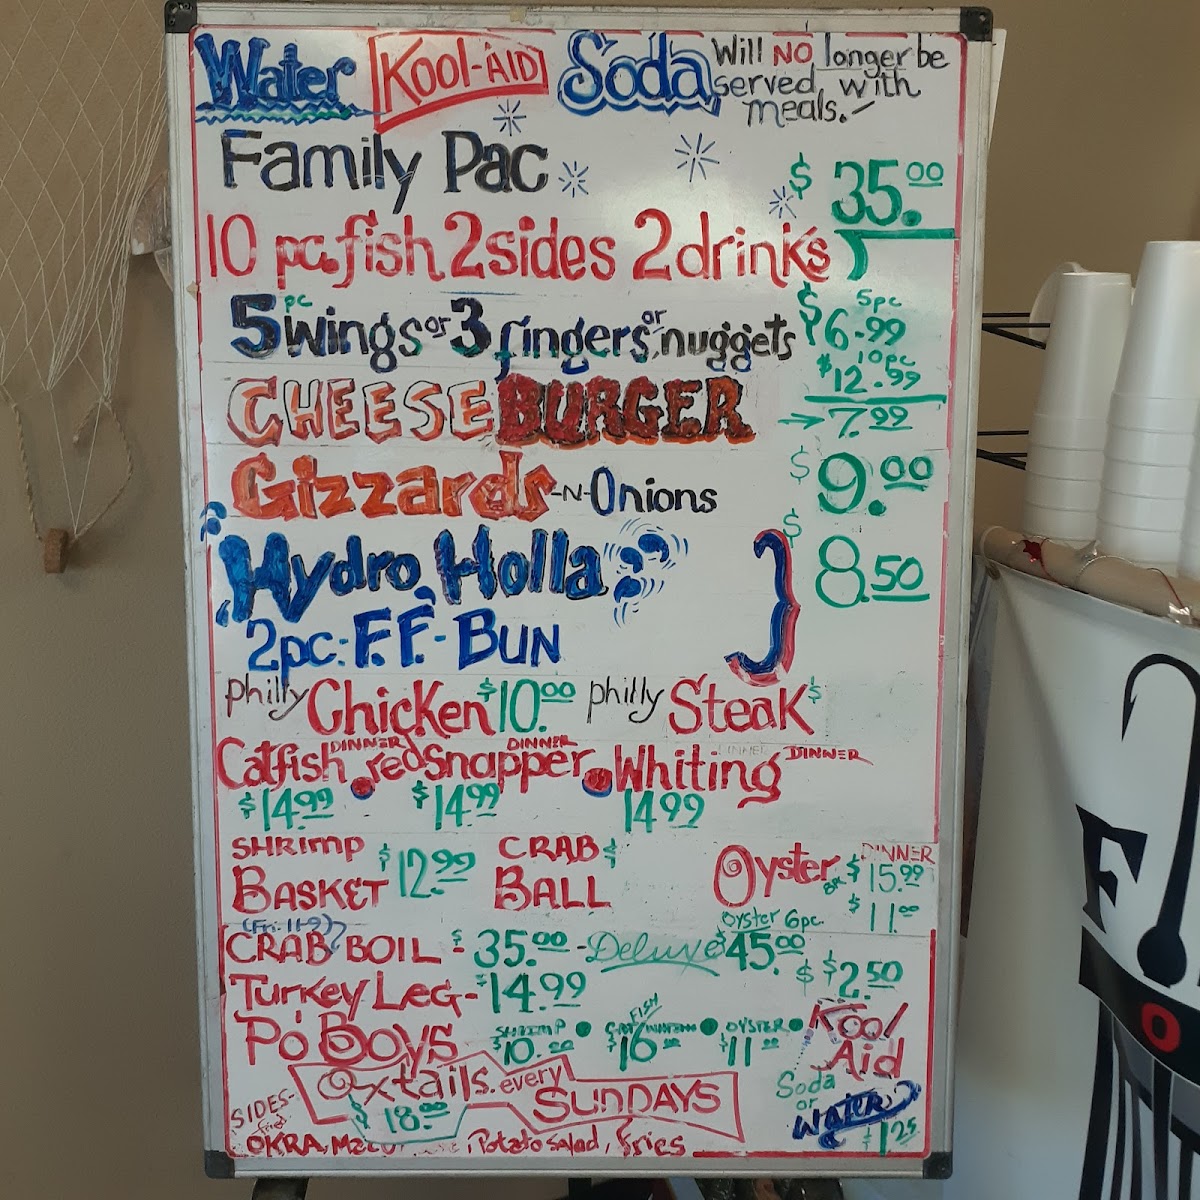 Water KOOL-AID Soda Will NO longer be
served with
meals.
Family Pac $35.00
10 pc. fish 2 sides 2 drinks
5 pc wings or 3 fingers or nuggets $6.99 5pc
10pc $12.99
CHEESE BURGER → 7.99
Gizzards -N- Onions $9.00
Hydro, Holla $8.50
2pc: F.F. - BUN
philly Chicken $10.00 philly Steak $
Catfish DINNER red Snapper DINNER Whiting DINNER
$14.99 $14.99 14.99
SHRIMP BASKET $12.99
CRAB BALL $
Oyster DINNER $15.99
Oyster 6pc. $11.00
(Fri. 11-9)
CRAB BOIL - $35.00 - Deluxe $45.00
Turkey Leg - $14.99
$ $2.50
Kool Aid
Po Boys SHRIMP $10.00 FISH $16 OYSTER $11
Oxtails. every SUNDAYS
$18.00
Soda or WATER $1.25
SIDES-
fried OKRA, Potato Salad, Fries
F
O